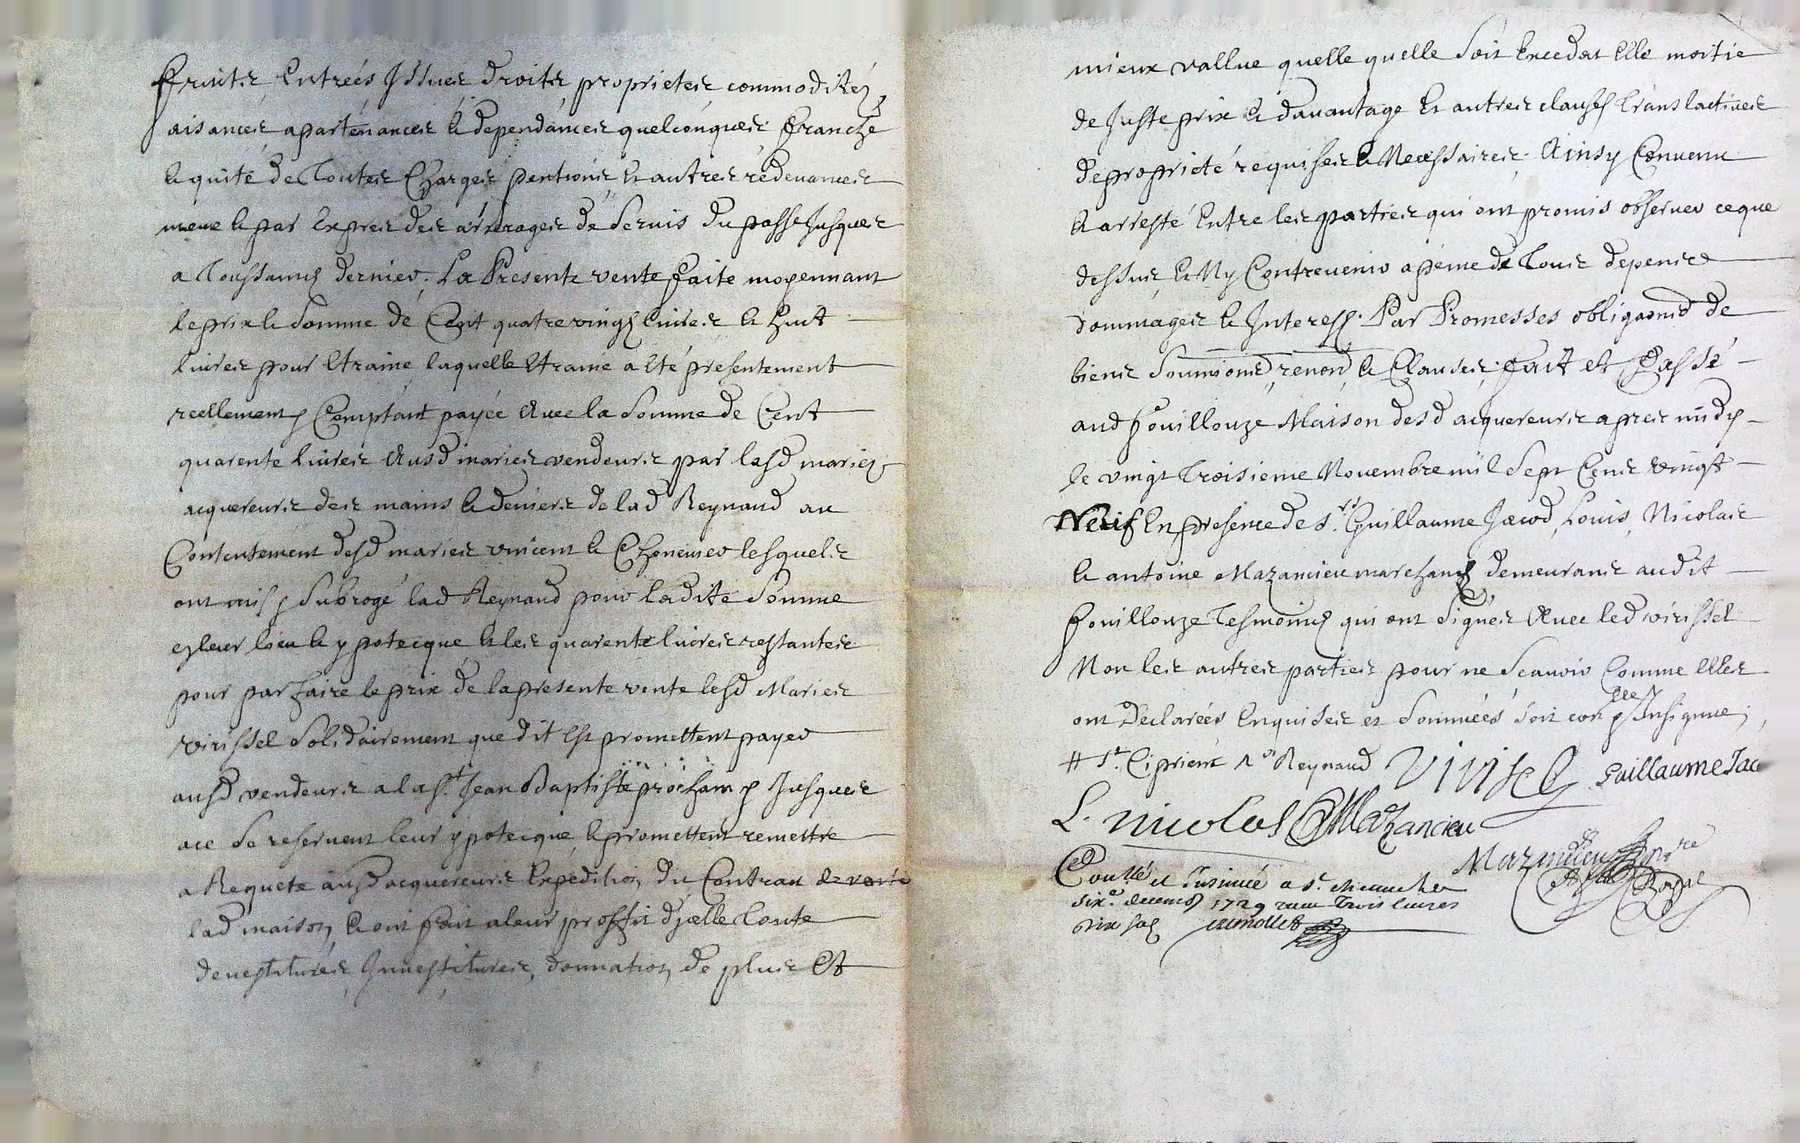 fruits Entrées Issues droits proprietes commodités
aisances apartenances & dependances quelconques franche
& quite de Toutes Charges pentions & autres redevances
meme & par Expres des arrerages de servis du passé Jusques
a Toussaint dernier. La Presente vente faite moyennant
le prix & Somme de Cent quatre vingt livres & huit
livres pour Etraine laquelle Etraine a Eté presentement
reellement Comptant payée Avec la Somme de Cent
quarente livres Ausd maries vendeurs par lesd maries
acquereurs des mains & deniers de lad Reynaud au
Contentement desd maries vincent & lesquels
ont mis & Subrogé lad Reynaud pour ladite Somme
en leur lieu & ypotecque & les quarente livres restantes
pour parfaire le prix de la presente vente lesd Maries
virissel Solidairement que dit Est promettent payer
ausd vendeurs a la st Jean Baptiste prochain & Jusques
a ce se reservent leur ypotecque, & promettent remettre
a Requete ausd acquereurs Expedition du Contrat de vente
lad maison, & ont fait a leur proffit d'jcelle Toute
devestitures Jnvestitures, donnation de plus Et
mieux vallue quelle quelle Soit Excedat Elle moitie
de Juste prix & davantage & autres clauses translatives
de propriété requises & Necessaires. Ainsy Convenu
& arresté Entre les parties qui ont promis observer ce que
dessus, & Ny Contrevenir a peine de Tous depens
dommages & Interess. Par Promesses obligaons de
biens Soumions, renon & Clauses, fait et Passé
aud fouillouze Maison desd acquereurs apres midy
le vingt Troisieme Novembre mil Sept Cens vingt
Neuf En presence de Srs Guillaume Jacod, Louis Nicolas
& antoine Mazancieu marchands demeurans audit
fouillouze Tesmoins qui ont Signés Avec led virissel
Non les autres parties pour ne Scavoir Comme Elles
ont Declarées Enquises et Sommées Soit con Insignue
# St. Ciprient Reynaud Virisel Guillaume Jac
L. nicolas Mazancieu
Mazancieu nore Royal
Conllé et Insinué a St.
six.e decemb 1729 recu Trois livres
dix sols